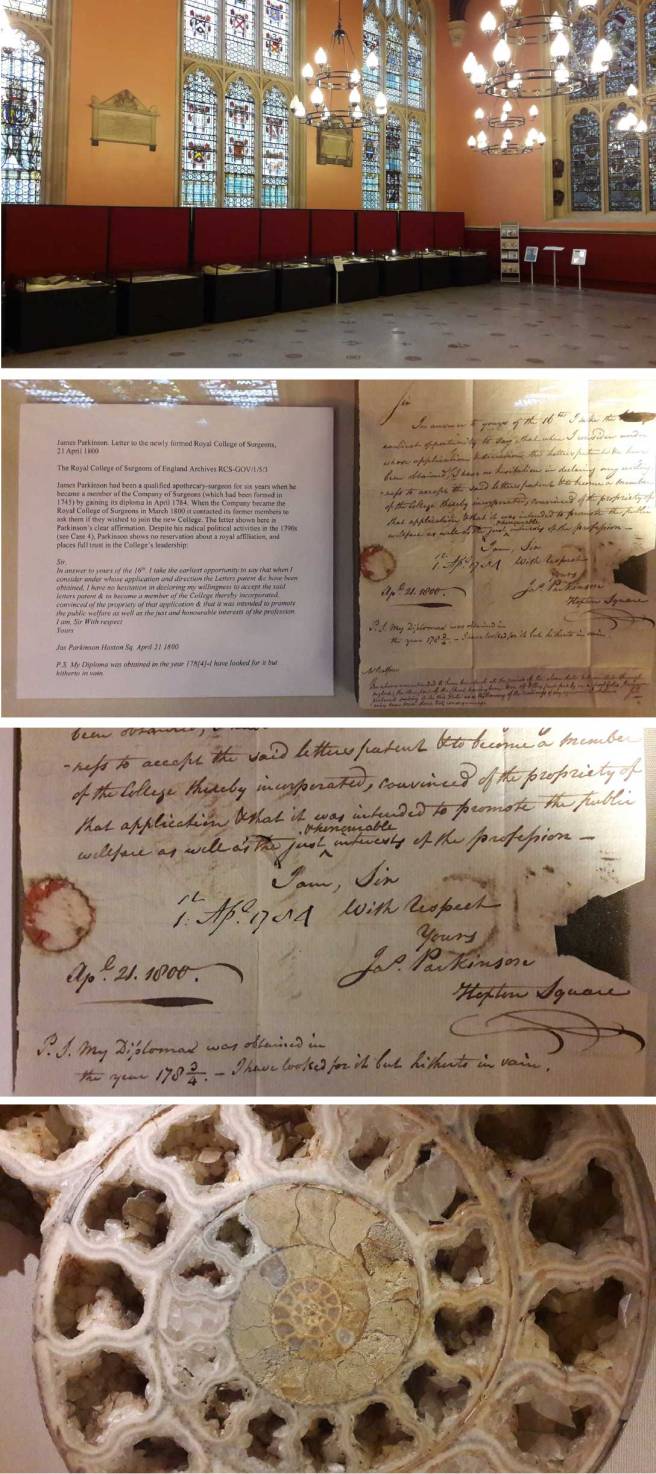 James Parkinson: Letter to the newly formed Royal College of Surgeons,
21 April 1800
The Royal College of Surgeons of England Archives RCS-GOV/1/5/3
James Parkinson had been a qualified apothecary-surgeon for six years when he
became a member of the Company of Surgeons (which had been formed in
1745) by gaining its diploma in April 1784. When the Company became the
Royal College of Surgeons in March 1800 it contacted its former members to
ask them if they wished to join the new College. The letter shown here is
Parkinson's clear affirmation. Despite his radical political activities in the 1790s
(see Case 4), Parkinson shows no reservation about a royal affiliation, and
places full trust in the College's leadership:
Sir.
In answer to yours of the 16th. I take the earliest opportunity to say that when I
consider under whose application and direction the Letters patent &c have been
obtained, I have no hesitation in declaring my willingness to accept the said
letters patent & to become a member of the College thereby incorporated,
convinced of the propriety of that application & that it was intended to promote
the public welfare as well as the just and honourable interests of the profession.
I am, Sir With respect
Yours
Jas Parkinson Hoxton Sq. April 21 1800
P.S. My Diploma was obtained in the year 178[4]-I have looked for it but
hitherto in vain.
Sir
In answer to yours of the 16th I take the
earliest opportunity to say, that when I consider under
whose application & direction the Letters patent &c have
been obtained, I have no hesitation in declaring my willing
-ness to accept the said letters patent & to become a member
of the College thereby incorporated, convinced of the propriety of
that application, & that it was intended to promote the public
welfare as well as the just & honourable interests of the profession –
I am, Sir
1st. Apl. 1784 With respect
Yours
Jas. Parkinson
Apl. 21. 1800.
Hoxton Square
P.S. My Diploma was obtained in
the year 178 3/4. – I have looked for it but hitherto in vain.
been obtained,
-ness to accept the said letters patent & to become a member
of the College thereby incorporated, convinced of the propriety of
that application, & that it was intended to promote the public
welfare as well as the just & honourable interests of the profession –
I am, Sir
1st. Apl. 1784 With respect
Yours
Apl. 21. 1800.
Jas. Parkinson
Hoxton Square
P.S. My Diploma was obtained in
the year 178 3/4. – I have looked for it but hitherto in vain.